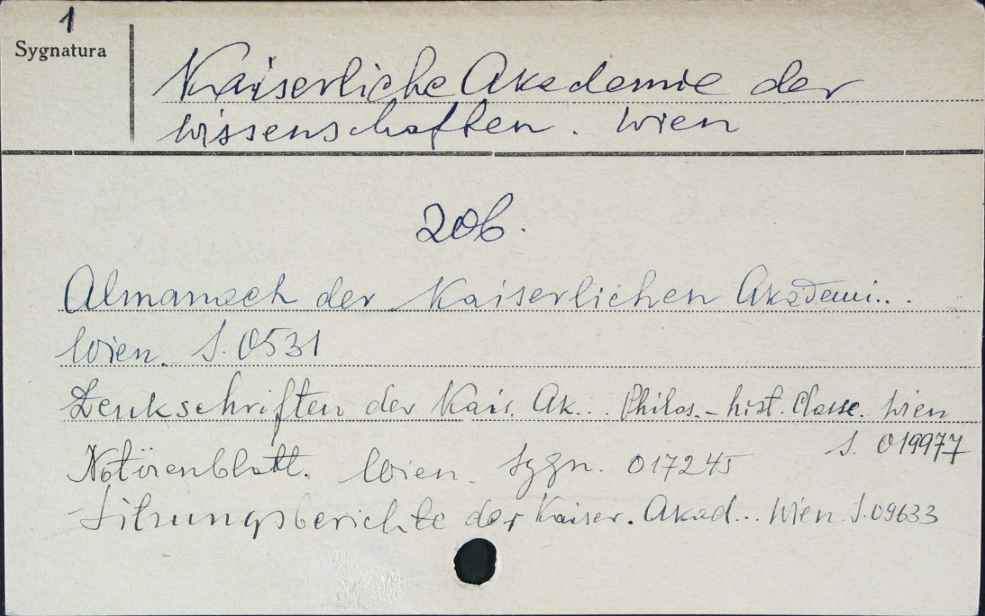 1
Sygnatura
Kaiserliche Akademie der
Wissenschaften. Wien
Zob.
Almanach der Kaiserlichen Akademi...
Wien. S. 0531
Denkschriften der Kais. Ak... Philos.-hist. Classe. Wien
S. 019977
Notizenblatt. Wien. Sygn. 017245
Sitzungsberichte der Kaiser. Akad... Wien S. 09633